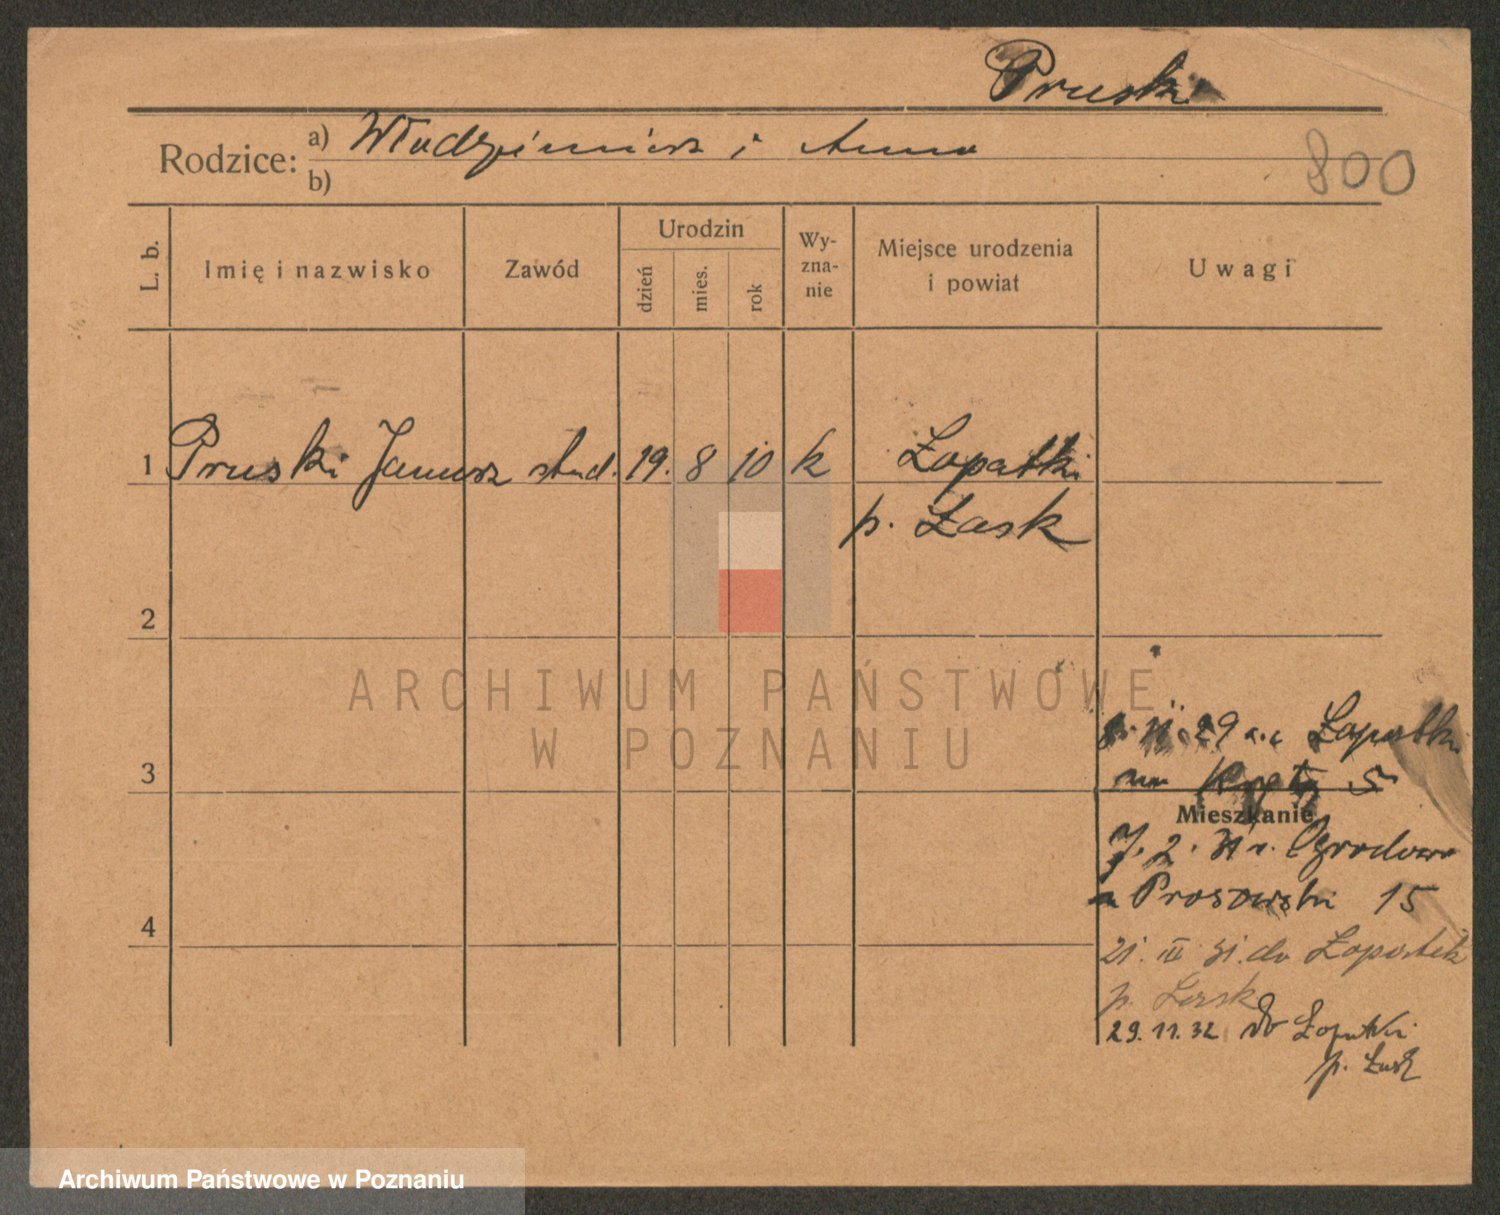 Pruski
Rodzice: a) Włodzimierz i Anna
b)
800
L. b. Imię i nazwisko Zawód Urodzin dzień mies. rok Wy-zna-nie Miejsce urodzenia i powiat Uwagi
1 Pruski Janusz stud. 19. 8 10 k Łopatki
p. Łask
2
ARCHIWUM PAŃSTWOWE
W POZNANIU
29 Łopatki
3 5
Mieszkanie
7. 2. 31 Ogrodowa
Prosowski 15
4
21. III 31. do Łopatek
p. Łask
29. 11. 32 do Łopatki
p. Łask
Archiwum Państwowe w Poznaniu